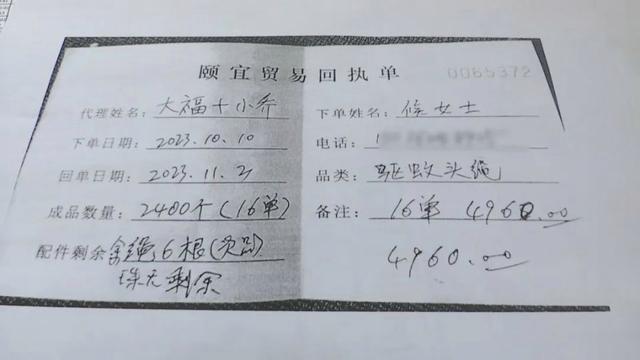 颐宜贸易回执单 0065372
代理姓名: 大福+小乔 下单姓名: 侯女士
下单日期: 2023.10.10 电话: 1
回单日期: 2023.11.2 品类: 驱蚊头绳
成品数量: 2400个(16单) 备注: 16单 4960.00
配件剩余 绳6根(次品) 4960.00
珠无剩余